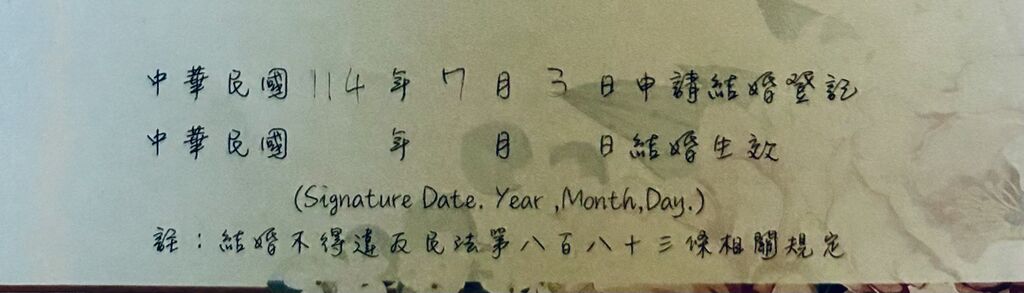 中華民國114年7月3日申請結婚登記
中華民國 年 月 日結婚生效
(Signature Date. Year ,Month,Day.)
註：結婚不得違反民法第八百八十三條相關規定